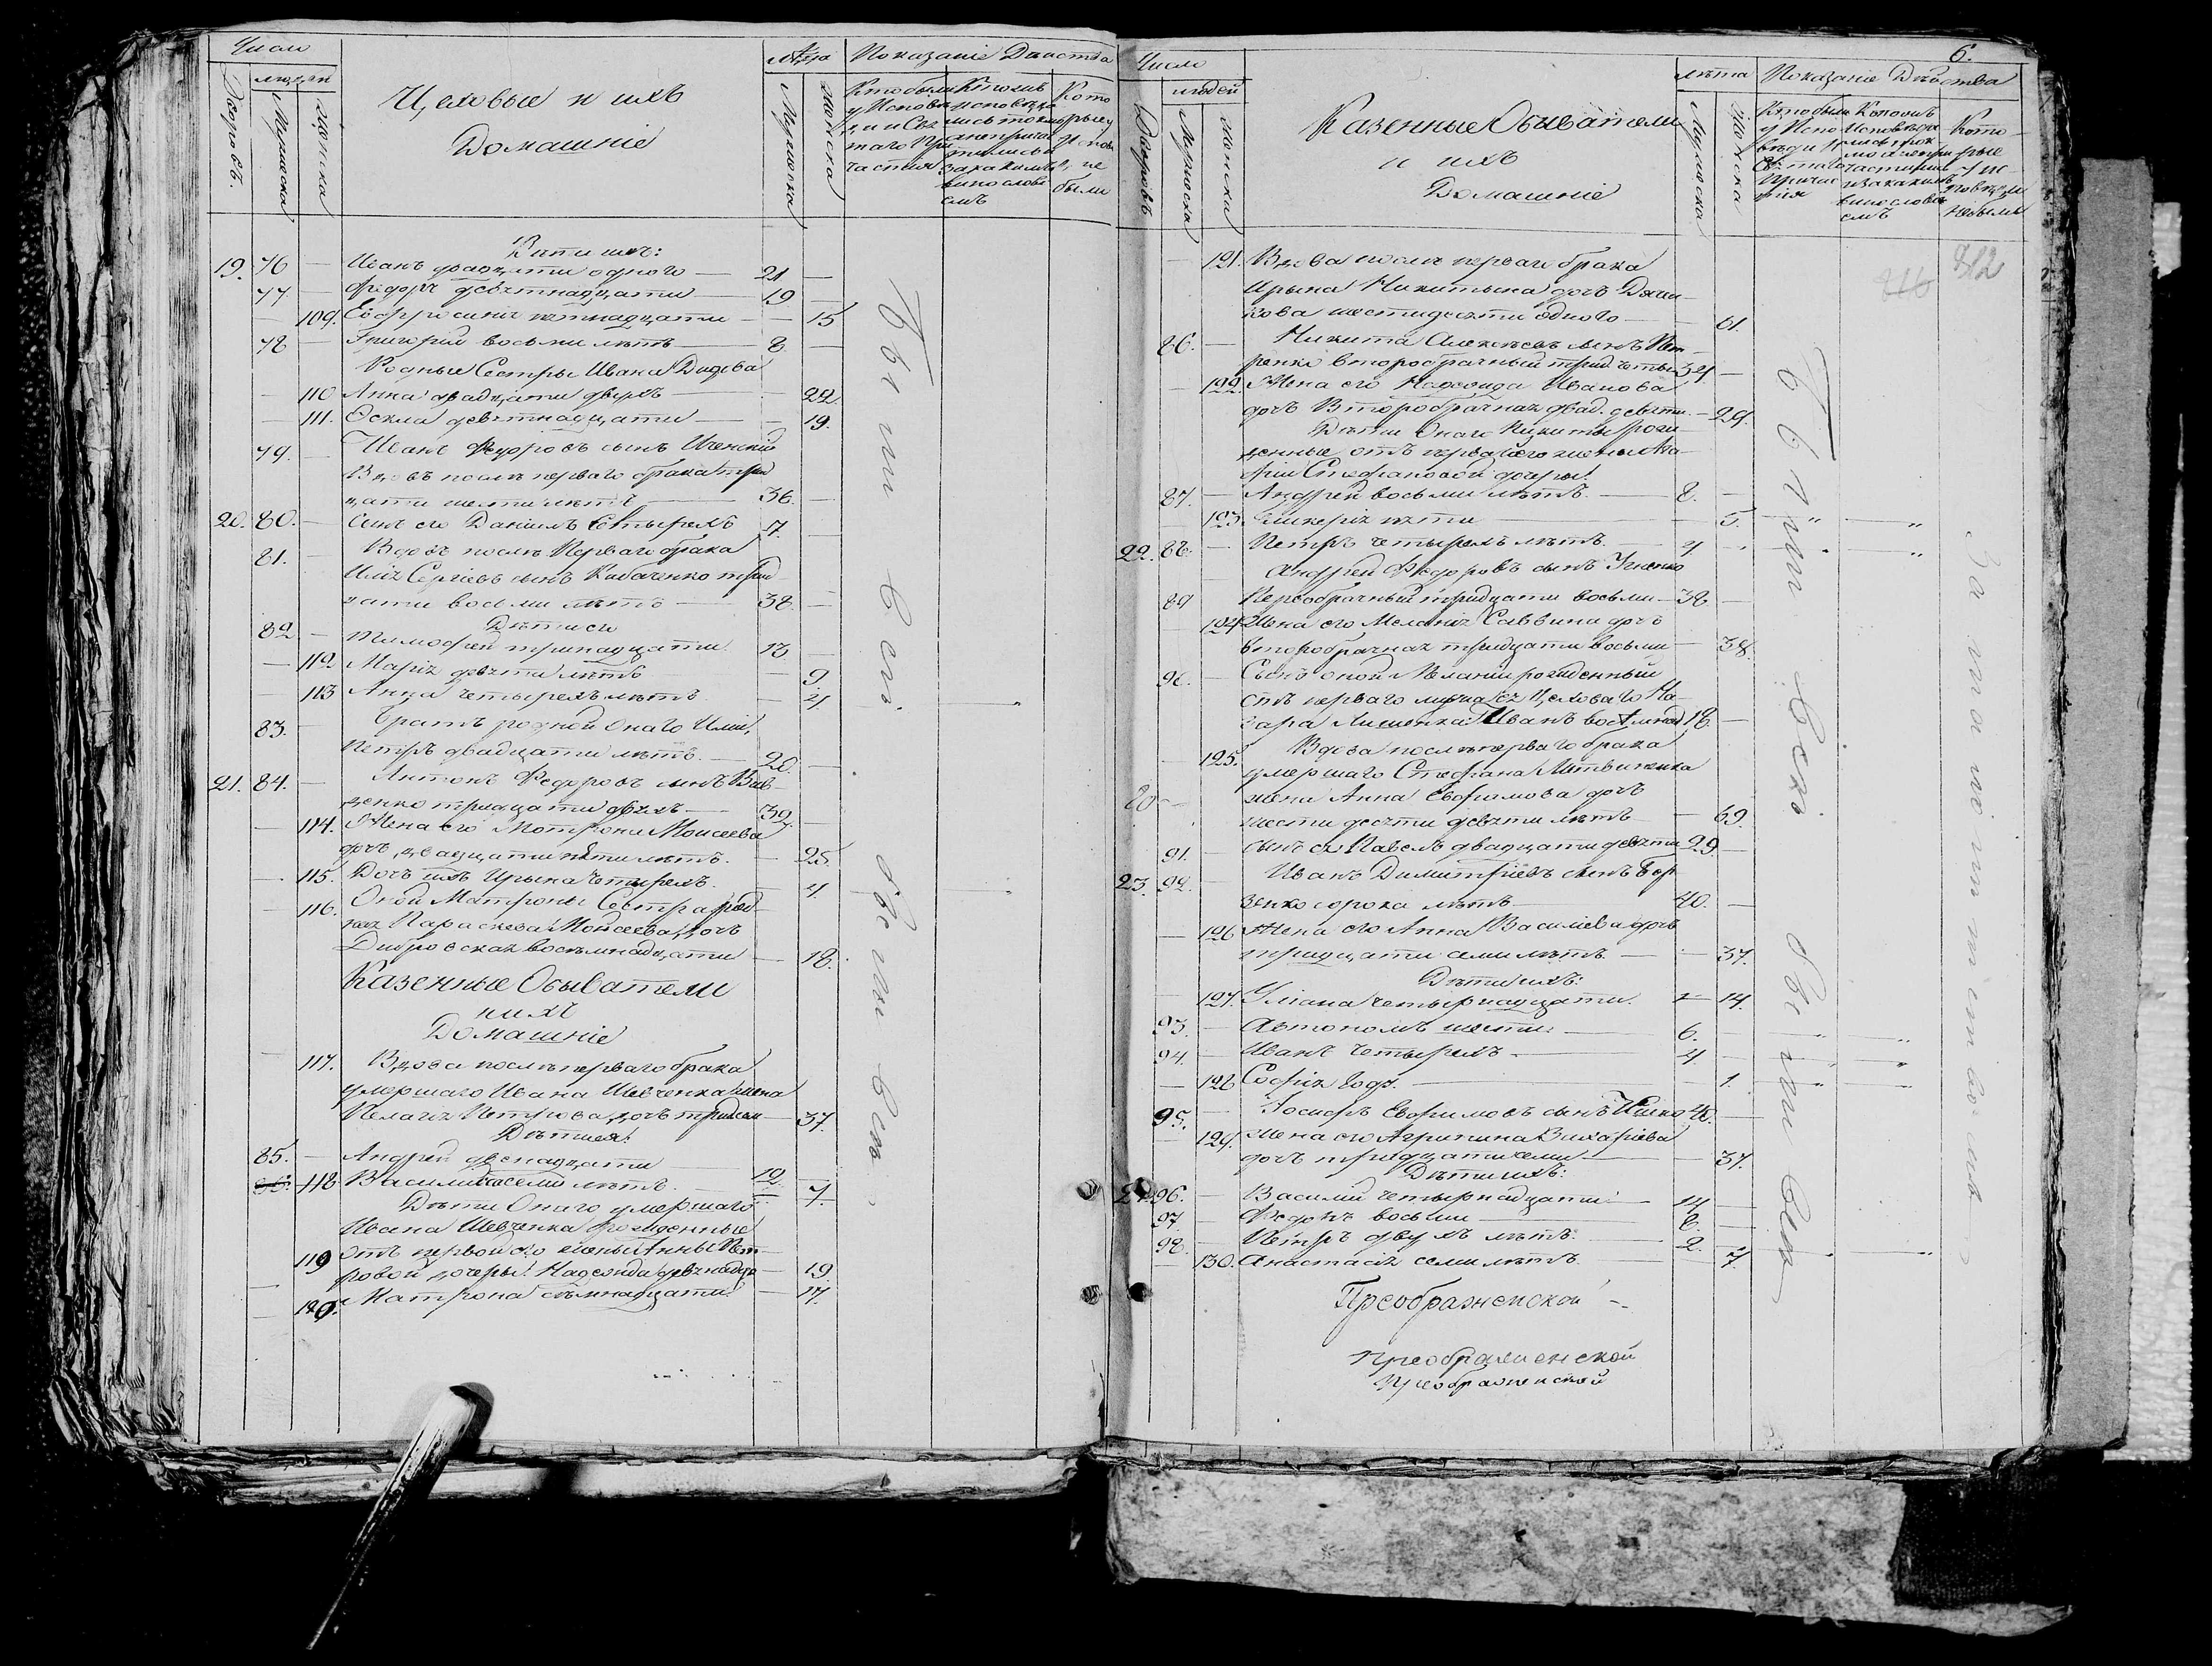 Число
Дворовъ
людей
Мужеска
Женска
Цеховые и ихъ
Домашніе
Лѣта
Мужеска
Женска
Показаніе Дѣйства
Кто были
у Исповѣ-
ди и Свя
таго При
частія
Кто изъ
исповѣда
лись токмо
а не прича
стились и
за какимъ
винослові
емъ
Кото
рые у
Испов.
не
были
Дѣти ихъ:
19. 76 — Иванъ двадцати одного — 21 —
77 — Федоръ девятнадцати — 19 —
— 109. Евфросинія пятнадцати — — 15
78 — Григорій восьми лѣтъ — 8. —
Родные Сестры Ивана Дидова
— 110 Анна двадцати двухъ — 22.
— 111. Оекла девятнадцати — — 19.
79. — Иванъ Федоровъ сынъ
Вдовъ послѣ перваго брака трид
цати шести лѣтъ — 36. —
20. 80. — Сынъ его Даніилъ Четырехъ 4. —
81. — Вдовъ послѣ Перваго брака
Илія Сергіевъ сынъ Кабаченко трид
цати восьми лѣтъ — 38. —
Дѣти его
82. — Тимофей тринадцати 13 —
— 112. Марія девяти лѣтъ — 9.
— 113 Анна четырехъ лѣтъ — 4
83. — Братъ родной Онаго Иліи,
Петръ двадцати лѣтъ. — 20. —
21. 84. — Антонъ Федоровъ сынъ
денко тридцати двухъ — 32. —
— 114. Жена его Мотрона Моисеева
дочь двадцати пяти лѣтъ. — 25.
— 115. Дочь ихъ Ирына Четырехъ. — 4.
— 116. Оной Матроны Сестра род
ная Параскева Моисеева дочь
Дибровская восемнадцати — 18.
Казенные Обыватели
и ихъ
Домашніе
117. Вдова послѣ перваго брака
умершаго Ивана Шевченка жена
Пелагія Петрова дочь тридсем — 37.
Дѣти ея:
85. — Андрей двенадцати — 12. —
118. Василиса семи лѣтъ. — 7.
Дѣти Онаго умершаго
Ивана Шевченка рожденные
отъ первой его жены Анны Пет
119 ровой дочеры: Надежда девятнадца — 19.
— 120. Матрона семнадцати — 17.
Были вси
вси
6.
Число
Дворовъ
людей
Мужеска
Женска
Казенные Обыватели
и ихъ
Домашніе
лѣта
Мужеска
Женска
Показаніе Дѣйства
Кто были
у Испо
вѣди и
Святаго
Причас
тія
Кто изъ
Исповѣда
лись ток
мо а не при
частились
и за какимъ
винослові
емъ
Кото-
рые
у Ис
повѣди
не были
312
— 121. Вдова послѣ перваго брака
Ирына Никитына дочь
кова шестидесяти одного — 61.
86. — Никита Алексѣевъ сынъ Пет-
ренко второбрачный тридчетыр 34 —
— 122. Жена его Надежда Иванова
дочь Второбрачная двад. девяти. — 29.
Дѣти Онаго Никиты рож
денные отъ первой его жены
Стефановой дочеры:
87. — Андрей восьми лѣтъ. — 8. —
— 123. Гликерія пяти — — 5.
22. 88. — Петръ четырехъ лѣтъ. — 4
Андрей Федоровъ сынъ
89 Первобрачный тридцати восьми — 38 —
— 124 Жена его Меланія Саввина дочь
второбрачная тридцати восьми — 38.
90. — Сынъ оной Меланіи рожденный
отъ перваго мужа ея Цеховаго На-
зара Лишенка Иванъ восемнад 18. —
— 125. Вдова послѣ перваго брака
умершаго Стефана Литвиненка
жена Анна Евфимова дочь
шести десяти девяти лѣтъ — 69.
91. — сынъ ея Павелъ двадцати девяти 29. —
23. 92. — Иванъ Димитріевъ сынъ Бор
зенко сорока лѣтъ — 40. —
— 126 Жена его Анна Василіева дочь
тридцати семи лѣтъ — — 37.
Дѣти ихъ:
— 127. Уліана четырнадцати. — 14.
93. — Автономъ шести: — 6. —
94. — Иванъ четырехъ — 4. —
— 128 Софія года. — — 1.
95. — Іосифъ Евфимовъ сынъ 40. —
— 129. Жена его Агрипина Захаріева
дочь тридцати семи — 37.
Дѣти ихъ:
24. 96. — Василій четырнадцати — 14 —
97. — Федоръ восьми — 8. —
98. — Петръ двухъ лѣтъ. — 2. —
— 130. Анастасія семи лѣтъ — 7.
Были вси
вси
За малолѣтствомъ
Преображенской
Преображенской
Преображенской